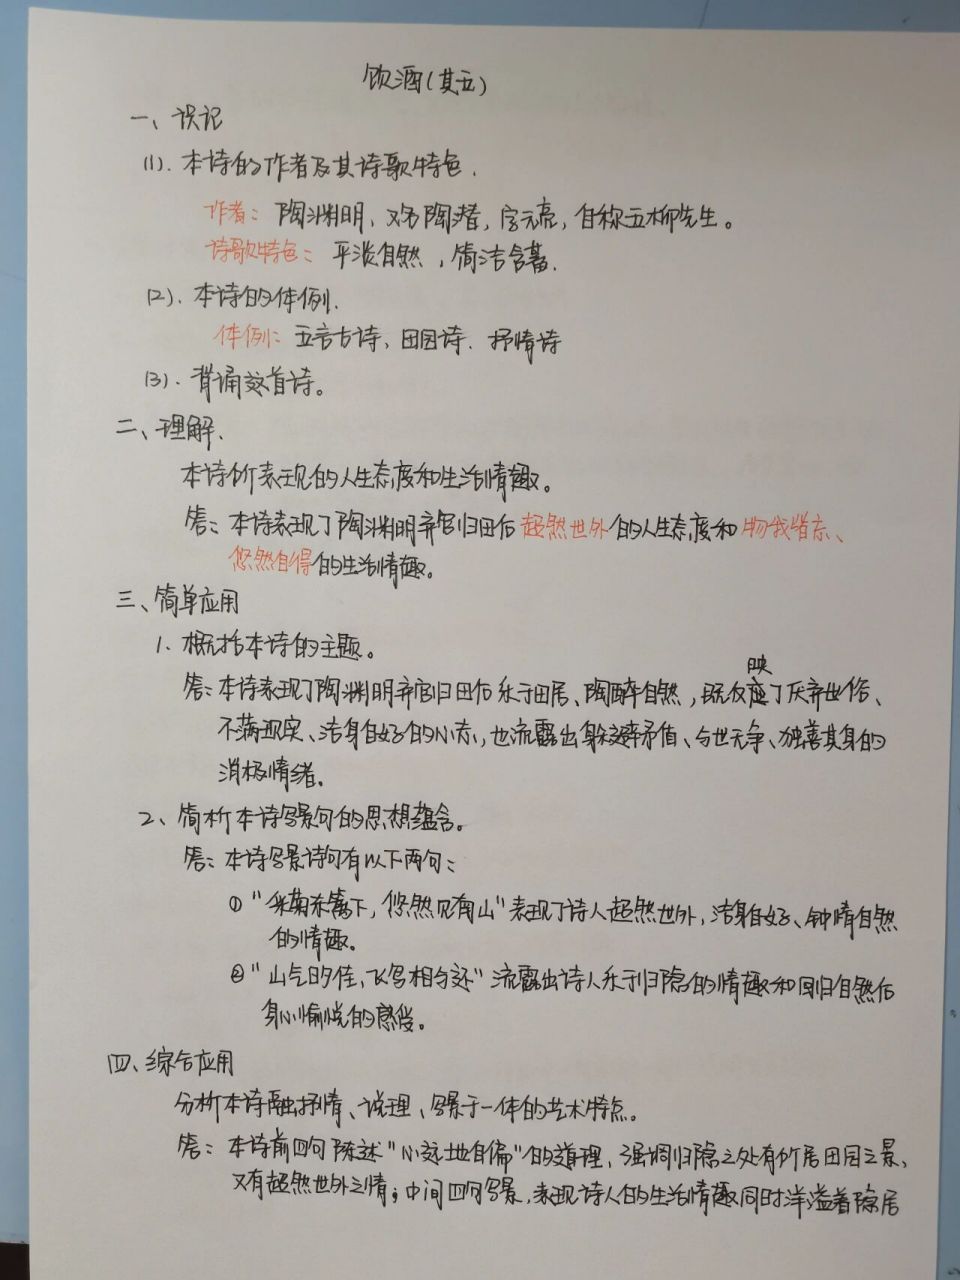 饮酒(其五)
一、识记
(1). 本诗的作者及其诗歌特色.
作者: 陶渊明, 又名陶潜, 字元亮, 自称五柳先生。
诗歌特色: 平淡自然, 简洁含蓄.
(2). 本诗的体例.
体例: 五言古诗, 田园诗. 抒情诗
(3). 背诵这首诗。
二、理解.
本诗所表现的人生态度和生活情趣。
答: 本诗表现了陶渊明弃官归田后超然世外的人生态度和物我皆忘、
悠然自得的生活情趣。
三、简单应用
1. 概括本诗的主题。
映
答: 本诗表现了陶渊明弃官归田后乐于田居、陶醉自然, 既反了厌弃世俗、
不满现实、洁身自好的心态, 也流露出躲避矛盾、与世无争、独善其身的
消极情绪。
2、简析本诗写景句的思想蕴含。
答: 本诗写景诗句有以下两句:
①“采菊东篱下, 悠然见南山”表现了诗人超然世外, 洁身自好、钟情自然
的情趣。
②“山气日夕佳, 飞鸟相与还”流露出诗人乐于归隐的情趣和回归自然后
身心愉悦的感受。
四、综合应用
分析本诗融抒情、说理、写景于一体的艺术特点。
答: 本诗前四句陈述“心远地自偏”的道理, 强调归隐之处有所居田园之景,
又有超然世外之情; 中间四句写景, 表现诗人的生活情趣同时洋溢着隐居